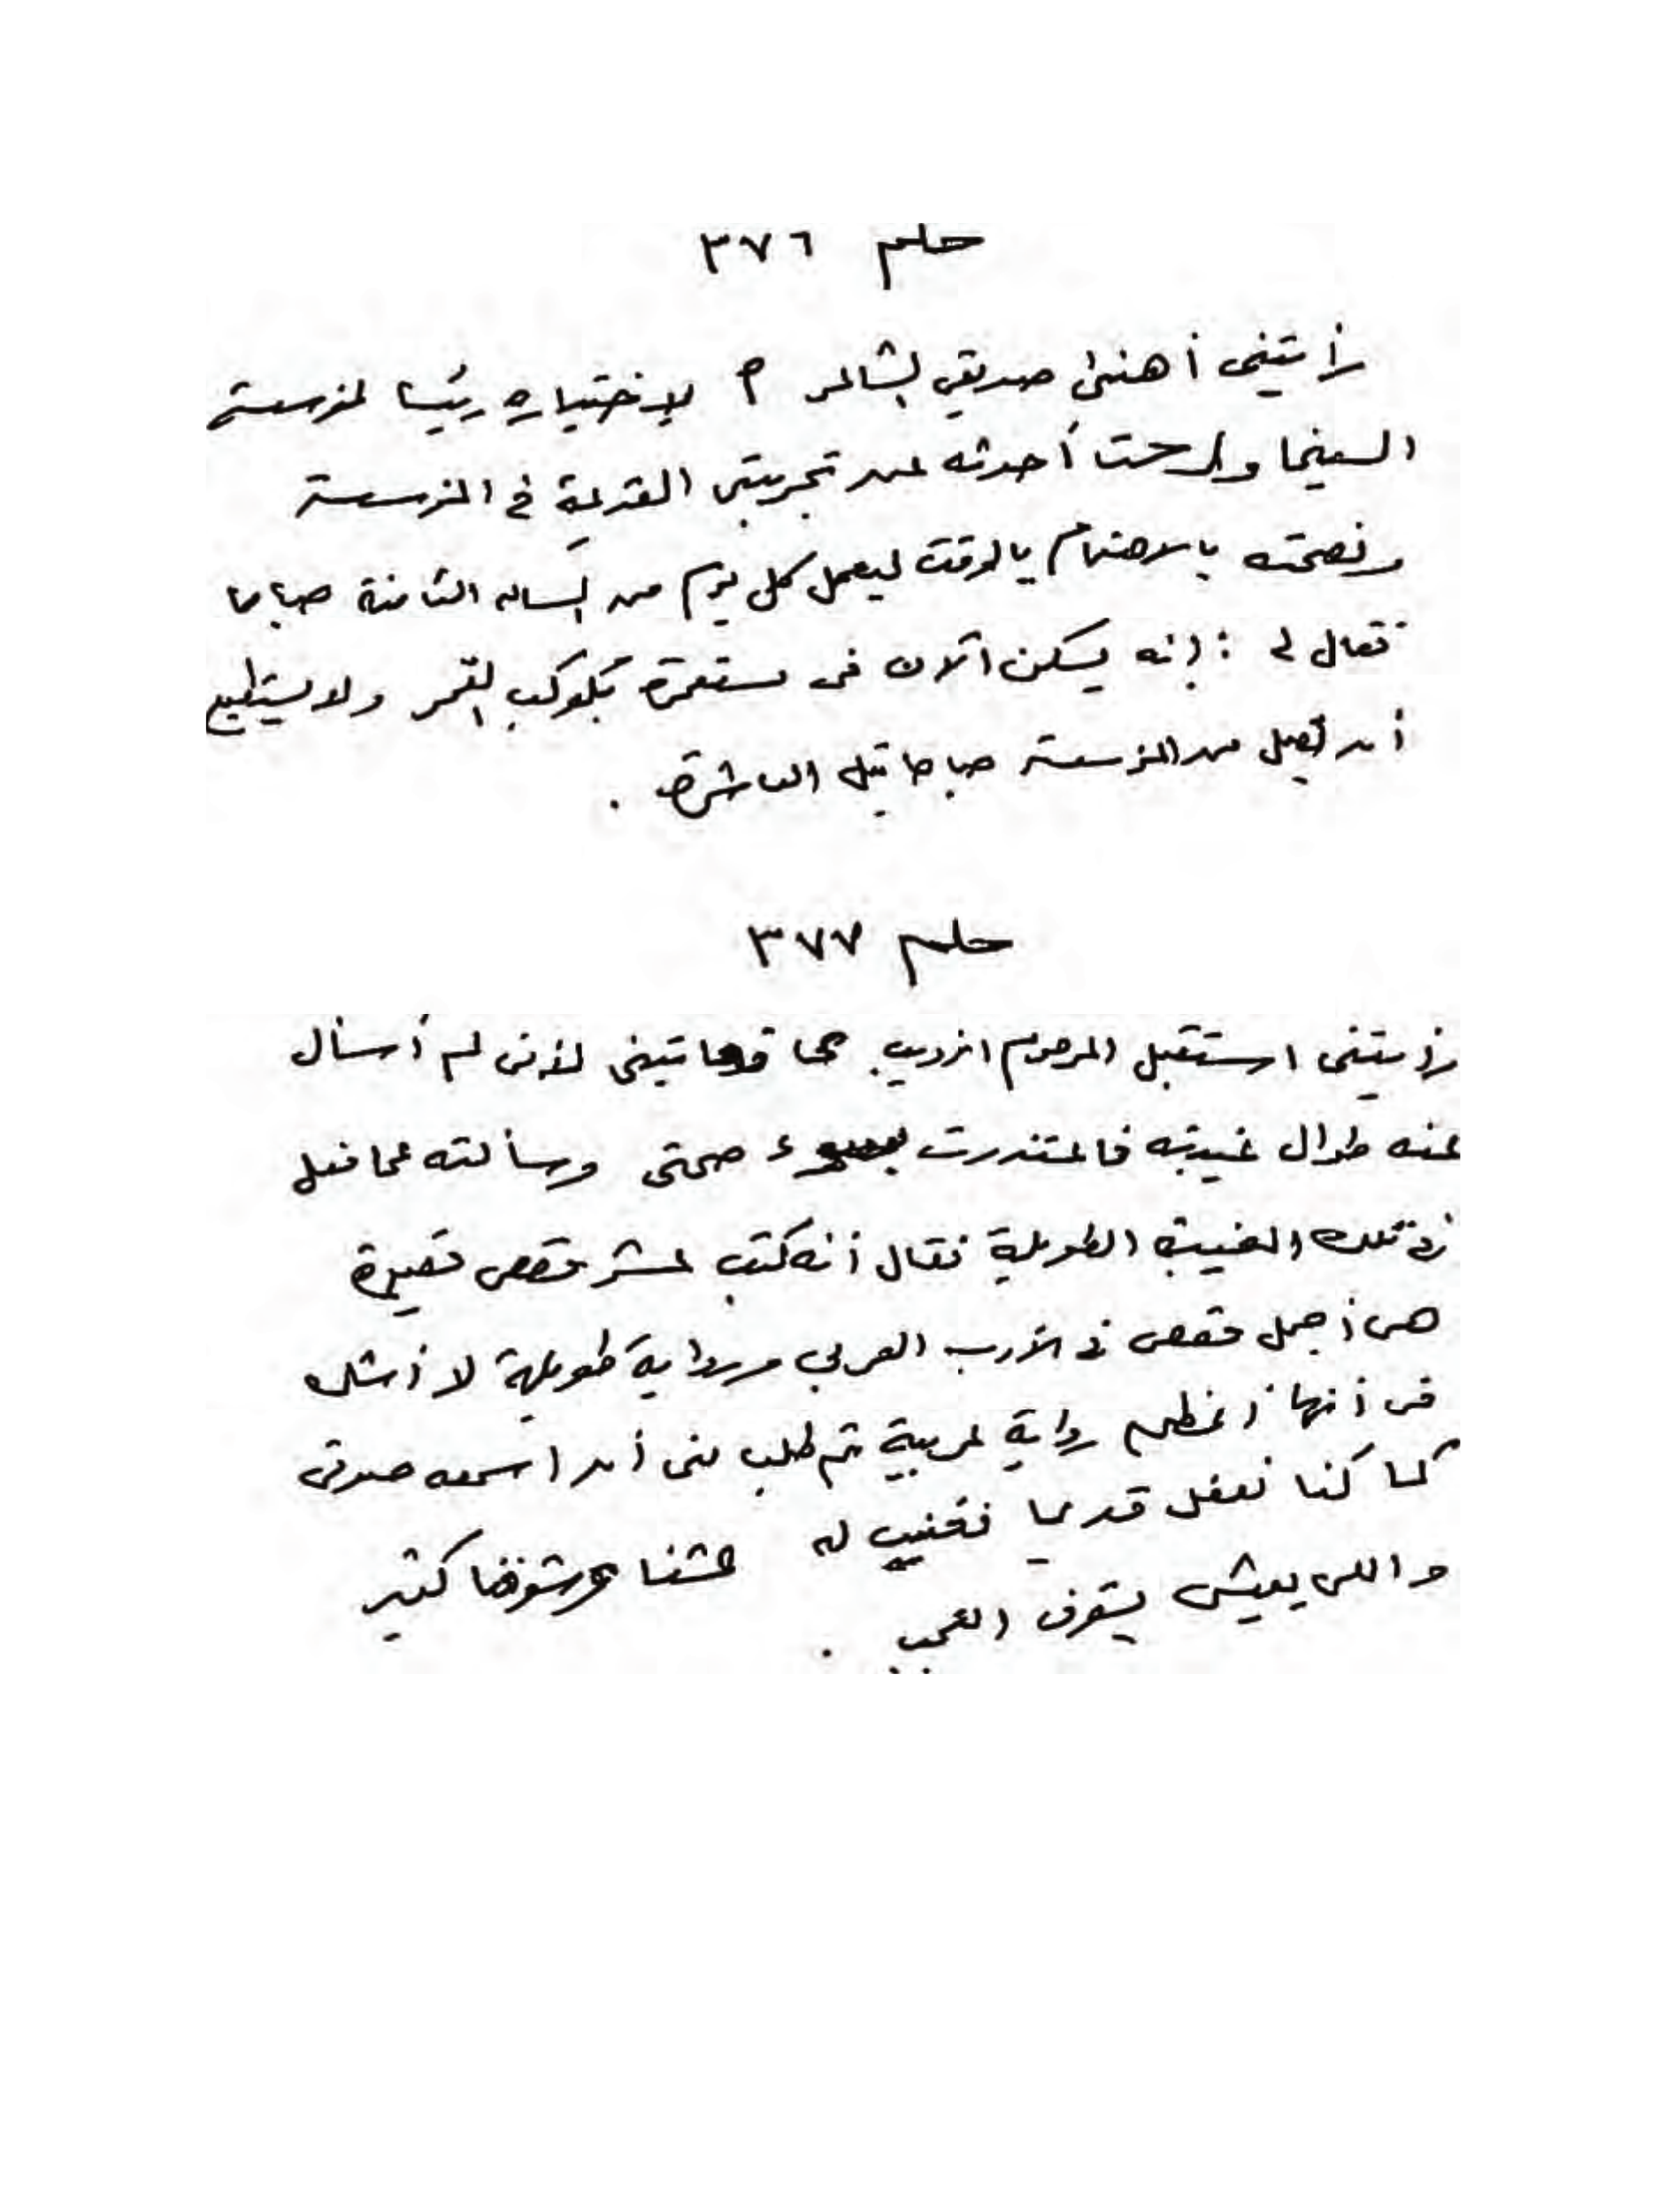 حلم ٣٧٦
رأيتنى أهنئ صديقي الشاعر م لإختياره رئيسا لمؤسسة
السينما ورحت أحدثه عن تجربتى القديمة فى المؤسسة
ونصحته بالاهتمام بالوقت ليعمل كل يوم من الساعة الثامنة صباحا
فقال لى : إنه يسكن الآن فى مستعمرة بكوكب القمر ولا يستطيع
أن يصل المؤسسة صباحا قبل العاشرة .
حلم ٣٧٧
رأيتنى استقبل المرحوم الأديب لأنى لم أسأل
عنه طوال غيبته فاعتذرت بسوء صحتى وسألته عما فعل
فى تلك الغيبة الطويلة فقال أنه كتب عشر قصص قصيرة
هى أجمل قصص فى الأدب العربى ورواية طويلة لا أشك
فى أنها أعظم رواية عربية ثم طلب منى أن اسمعه صوتى
كما كنا نفعل قديما فغنيت له عشنا وشوفنا كتير
واللى يعيش يشوف العجب .